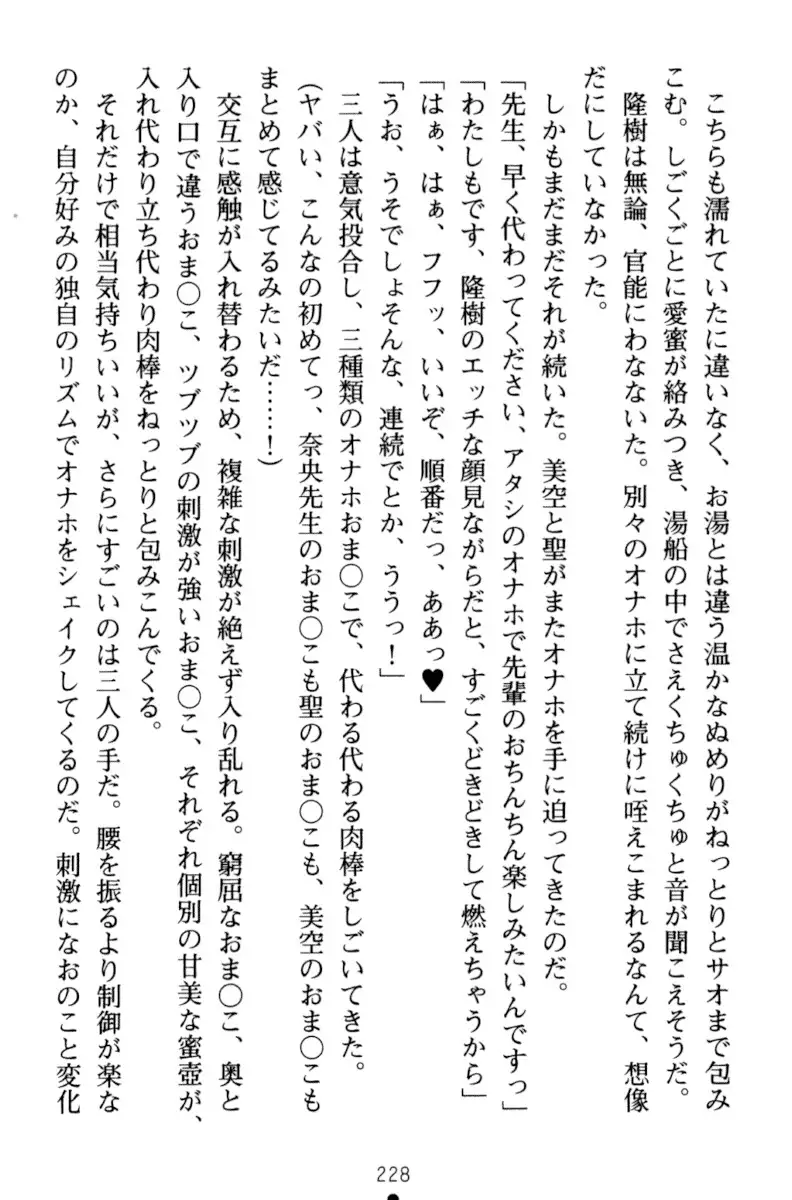 こちらも濡れていたに違いなく、お湯とは違う温かなぬめりがねっとりとサオまで包み
こむ。しごくごとに愛蜜が絡みつき、湯船の中でさえくちゅくちゅと音が聞こえそうだ。
隆樹は無論、官能にわなないた。別々のオナホに立て続けに咥えこまれるなんて、想像
だにしていなかった。
しかもまだまだそれが続いた。美空と聖がまたオナホを手に迫ってきたのだ。
「先生、早く代わってください、アタシのオナホで先輩のおちんちん楽しみたいんですっ」
「わたしもです、隆樹のエッチな顔見ながらだと、すごくどきどきして燃えちゃうから」
「はぁ、はぁ、フフッ、いいぞ、順番だっ、ああっ♥」
「うお、うそでしょそんな、連続でとか、ううっ！」
三人は意気投合し、三種類のオナホおま◯こで、代わる代わる肉棒をしごいてきた。
（ヤバい、こんなの初めてっ、奈央先生のおま◯こも聖のおま◯こも、美空のおま◯こも
まとめて感じてるみたいだ……！）
交互に感触が入れ替わるため、複雑な刺激が絶えず入り乱れる。窮屈なおま◯こ、奥と
入り口で違うおま◯こ、ツブツブの刺激が強いおま◯こ、それぞれ個別の甘美な蜜壺が、
入れ代わり立ち代わり肉棒をねっとりと包みこんでくる。
それだけで相当気持ちいいが、さらにすごいのは三人の手だ。腰を振るより制御が楽な
のか、自分好みの独自のリズムでオナホをシェイクしてくるのだ。刺激になおのこと変化
228